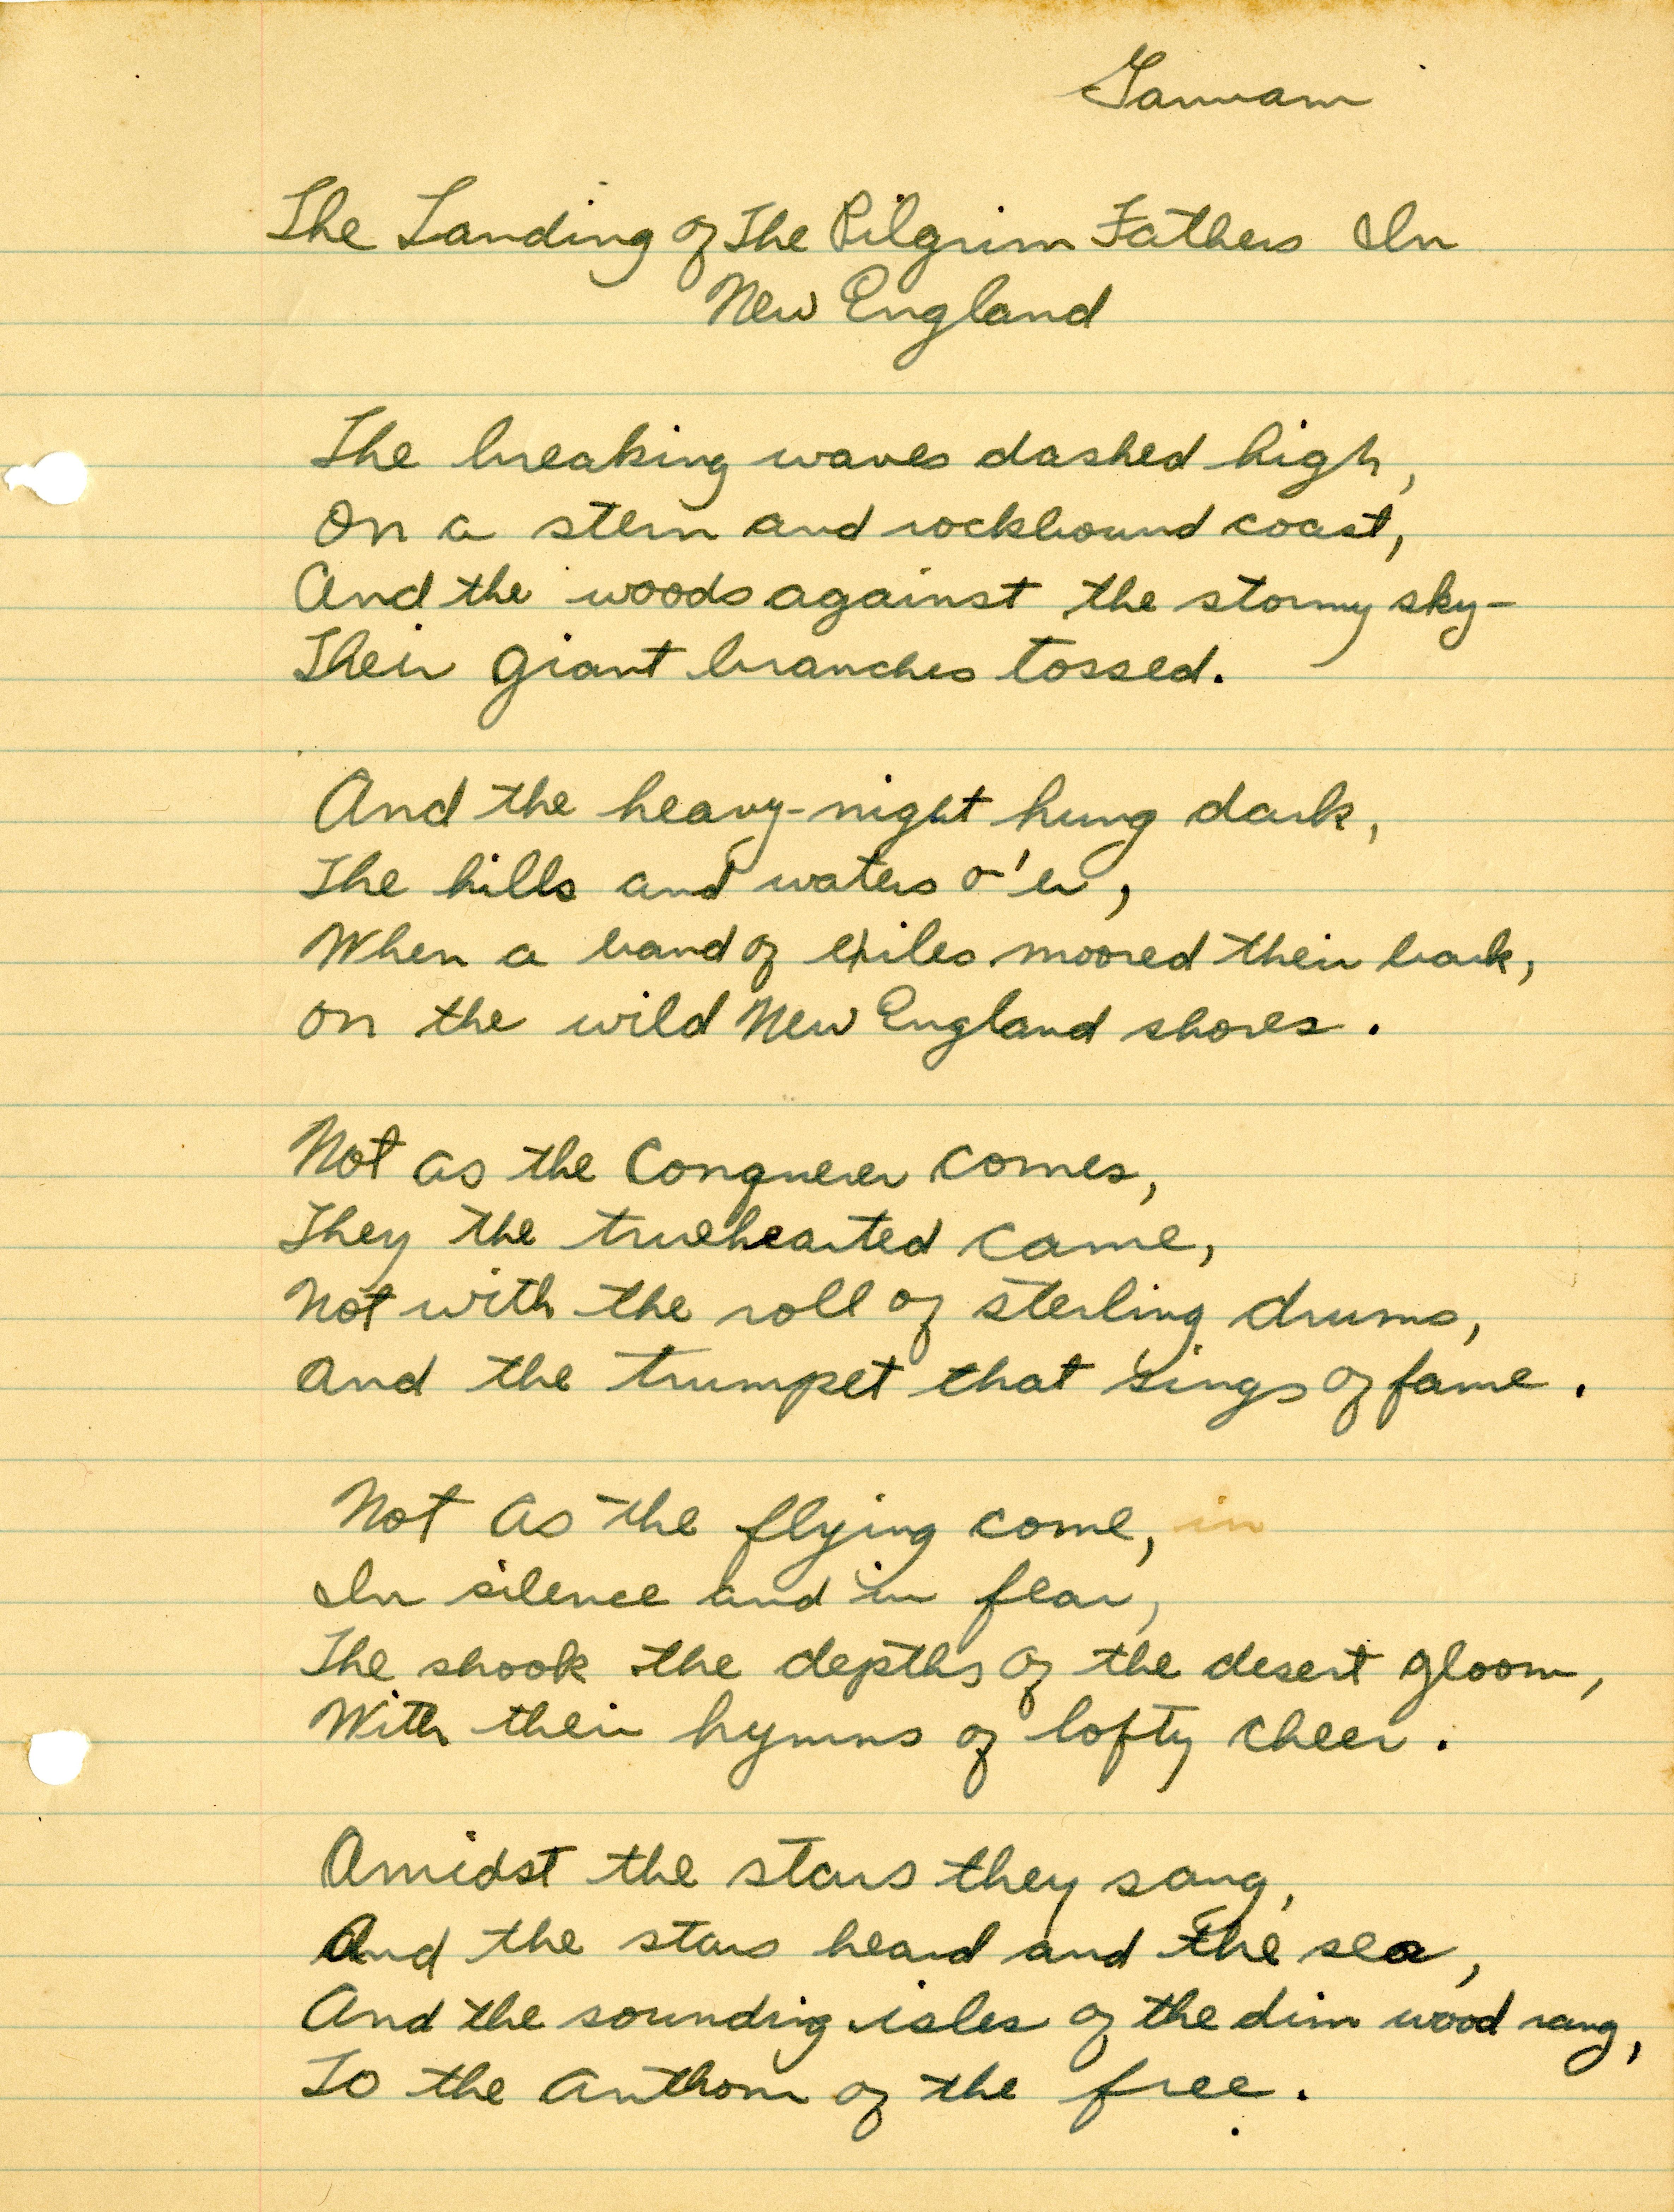 The Landing of The Pilgrim Fathers In
New England
The breaking waves dashed high,
On a stern and rockbound coast,
And the woods against the stormy sky-
Their giant branches tossed.
And the heavy-night hung dark,
The hills and waters o'er,
When a band of exiles moored their bark,
on the wild New England shores.
Not as the Conquerer comes,
They the truehearted came,
Not with the roll of sterling drums,
And the trumpet that sings of fame.
Not as the flying come, in
In silence and in fear,
The shook the depths of the desert gloom,
With their hymns of lofty cheer.
Amidst the stars they sang,
And the stars heard and the sea,
And the sounding isles of the dim wood rang,
To the Anthom of the free.